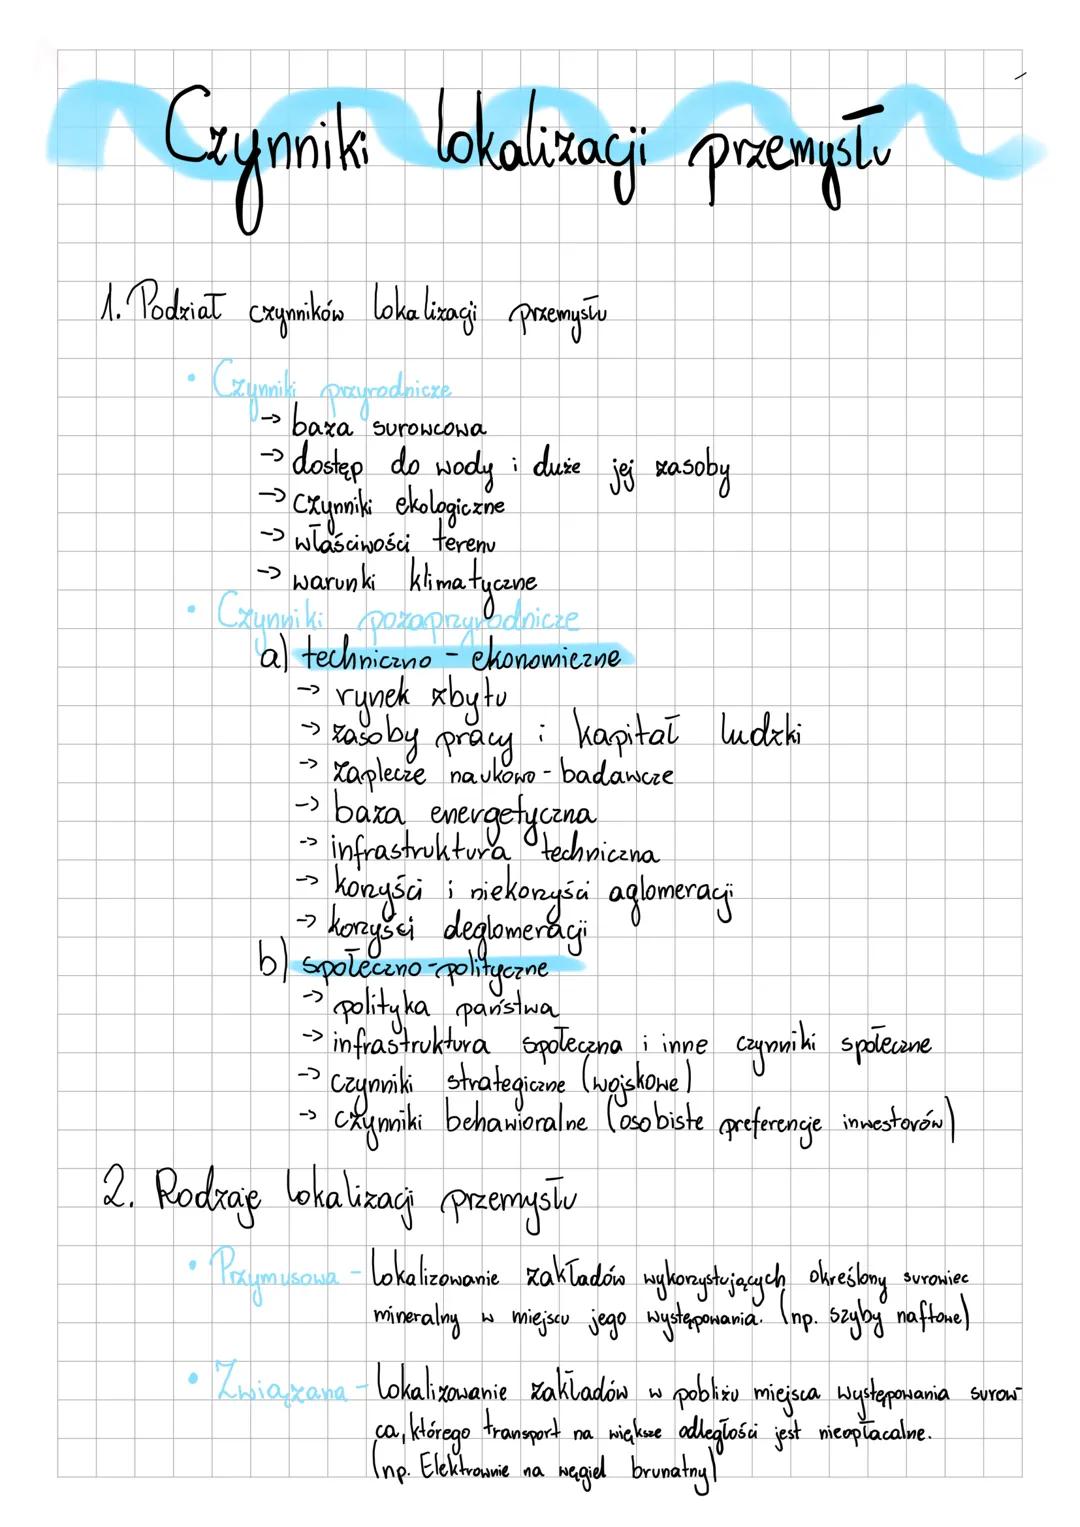 Czynniki lokalizacji przemysłu
1. Podział czynników lokalizacji przemysłu
• Czynniki przyrodnicze
→ baza surowcowa
→ dostęp do wody i duże jej zasoby
→ czynniki ekologiczne
→ właściwości terenu
→ warunki klimatyczne
• Czynniki pozaprzyrodnicze
a) techniczno - ekonomiczne
→ rynek zbytu
→ zasoby pracy i kapitał ludzki
→ zaplecze naukowo - badawcze
→ baza energetyczna
→ infrastruktura techniczna
→ korzyści i niekorzyści aglomeracji
→ korzyści deglomeracji
b) społeczno - polityczne
→ polityka państwa
→ infrastruktura społeczna i inne czynniki społeczne
→ czynniki strategiczne (wojskowe)
→ czynniki behawioralne (osobiste preferencje inwestorów)
2. Rodzaje lokalizacji przemysłu
• Przymusowa - lokalizowanie zakładów wykorzystujących określony surowiec
mineralny w miejscu jego występowania. (np. szyby naftowe)
• Związana - lokalizowanie zakładów w pobliżu miejsca występowania surow-
ca, którego transport na większe odległości jest nieopłacalne.
(np. Elektrownie na węgiel brunatny)